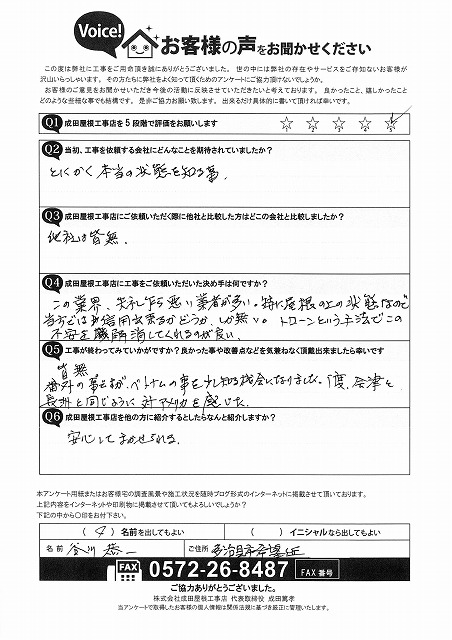 Voice!
お客様の声をお聞かせください
この度は弊社に工事をご用命頂き誠にありがとうございます。世の中には弊社の存在やサービスをご存知ないお客様が
沢山いらっしゃいます。その方たちに弊社をよく知って頂くためのアンケートにご協力頂けないでしょうか。
お客様のご意見をお聞かせいただき今後の活動に反映させていただきたいと考えております。良かったこと、嬉しかったこと
どのような些細な事でも結構です。是非ご協力お願い致します。出来るだけ具体的に書いて頂ければ幸いです。
Q1 成田屋根工事店を5段階で評価をお願いします ☆ ☆ ☆ ☆ ☆
Q2 当初、工事を依頼する会社にどんなことを期待されていましたか?
とにかく本当の状態を知る事.
Q3 成田屋根工事店にご依頼いただく際に他社と比較した方はどこの会社と比較しましたか?
他社は皆無.
Q4 成田屋根工事店に工事をご依頼いただいた決め手は何ですか?
この業界、失礼乍ら悪い業者が多い。特に屋根の上の状態なので
信用出来るかどうか、しか無い。ドローンという手法でこの
不安を解消してくれるのが良い、
Q5 工事が終わってみていかがですか?良かった事や改善点などを気兼ねなく頂戴出来ましたら幸いです
皆無
番外の事ですが、ベトナムの事を少し知る機会になりました。1度、会津と
長州と同じように対アメリカを感じた.
Q6 成田屋根工事店を他の方に紹介するとしたらなんと紹介しますか?
安心してまかせられる.
本アンケート用紙またはお客様宅の調査風景や施工状況を随時ブログ形式のインターネットに掲載させて頂いております。
上記内容をインターネットや印刷物に掲載させて頂いてもよろしいでしょうか?
下記の中から〇印をお付下さい。
( ) 名前を出してもよい ( ) イニシャルなら出してもよい
名前 谷川 恭一 ご住所 多治見市
FAX 0572-26-8487 FAX番号
ご協力ありがとうございました。
株式会社成田屋根工事店 代表取締役 成田篤孝
当アンケートで取得したお客様の個人情報は関係法規に基づき厳正に管理いたします。